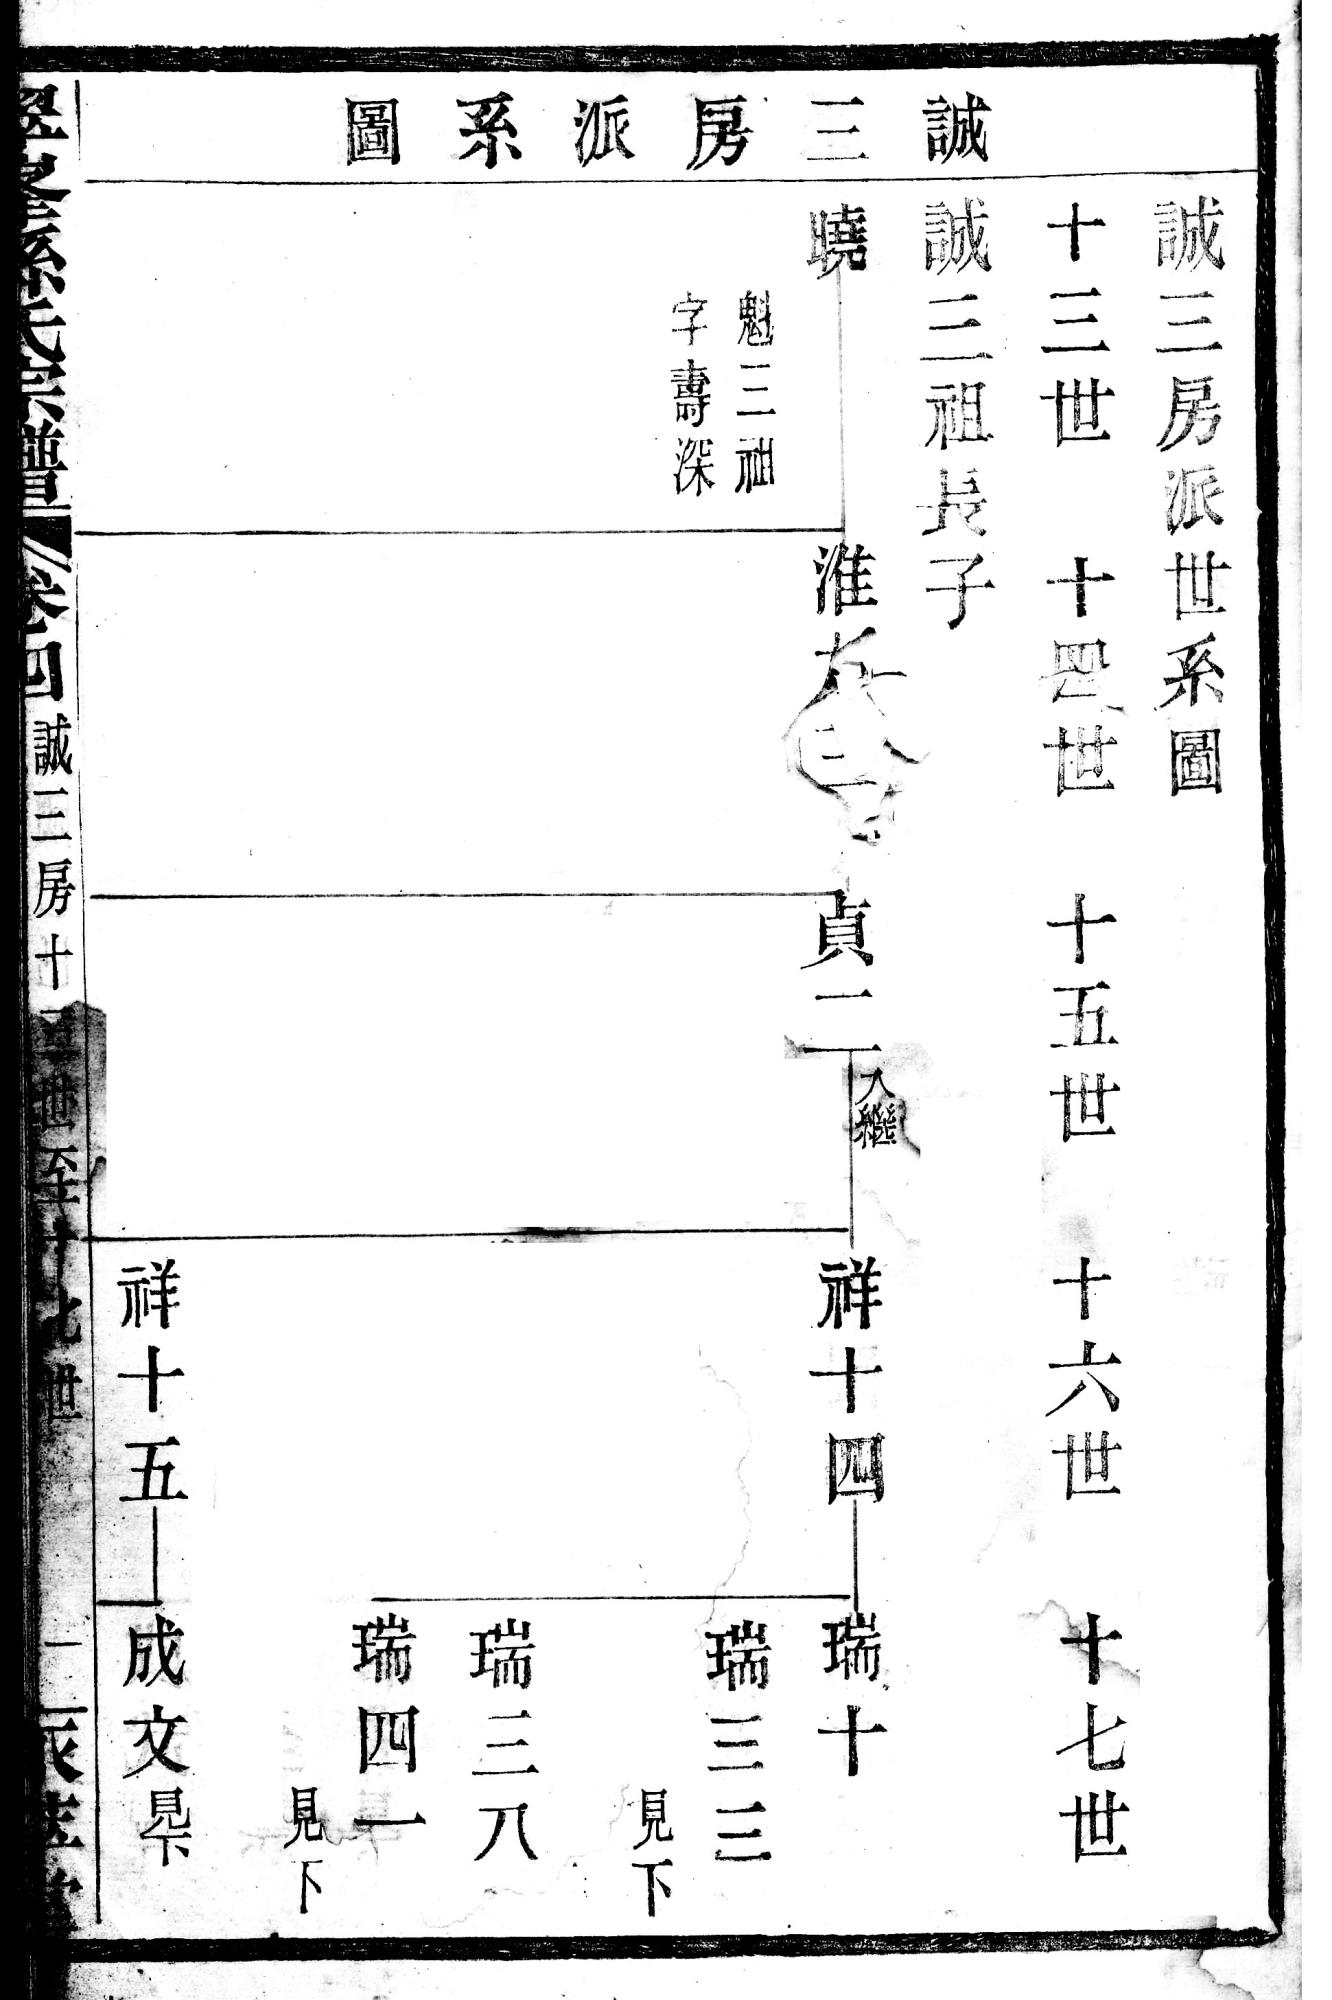 誠三房派系圖
誠三房派世系圖
十三世 十四世 十五世 十六世 十七世
誠三祖長子
曉
魁三祖
字壽深
淮
三
貞二
入繼
祥十四
瑞十
瑞三三
見下
瑞三八
瑞四一
見下
祥十五
成文
見下
孫氏宗譜
卷四
誠三房十三世至十七世
一